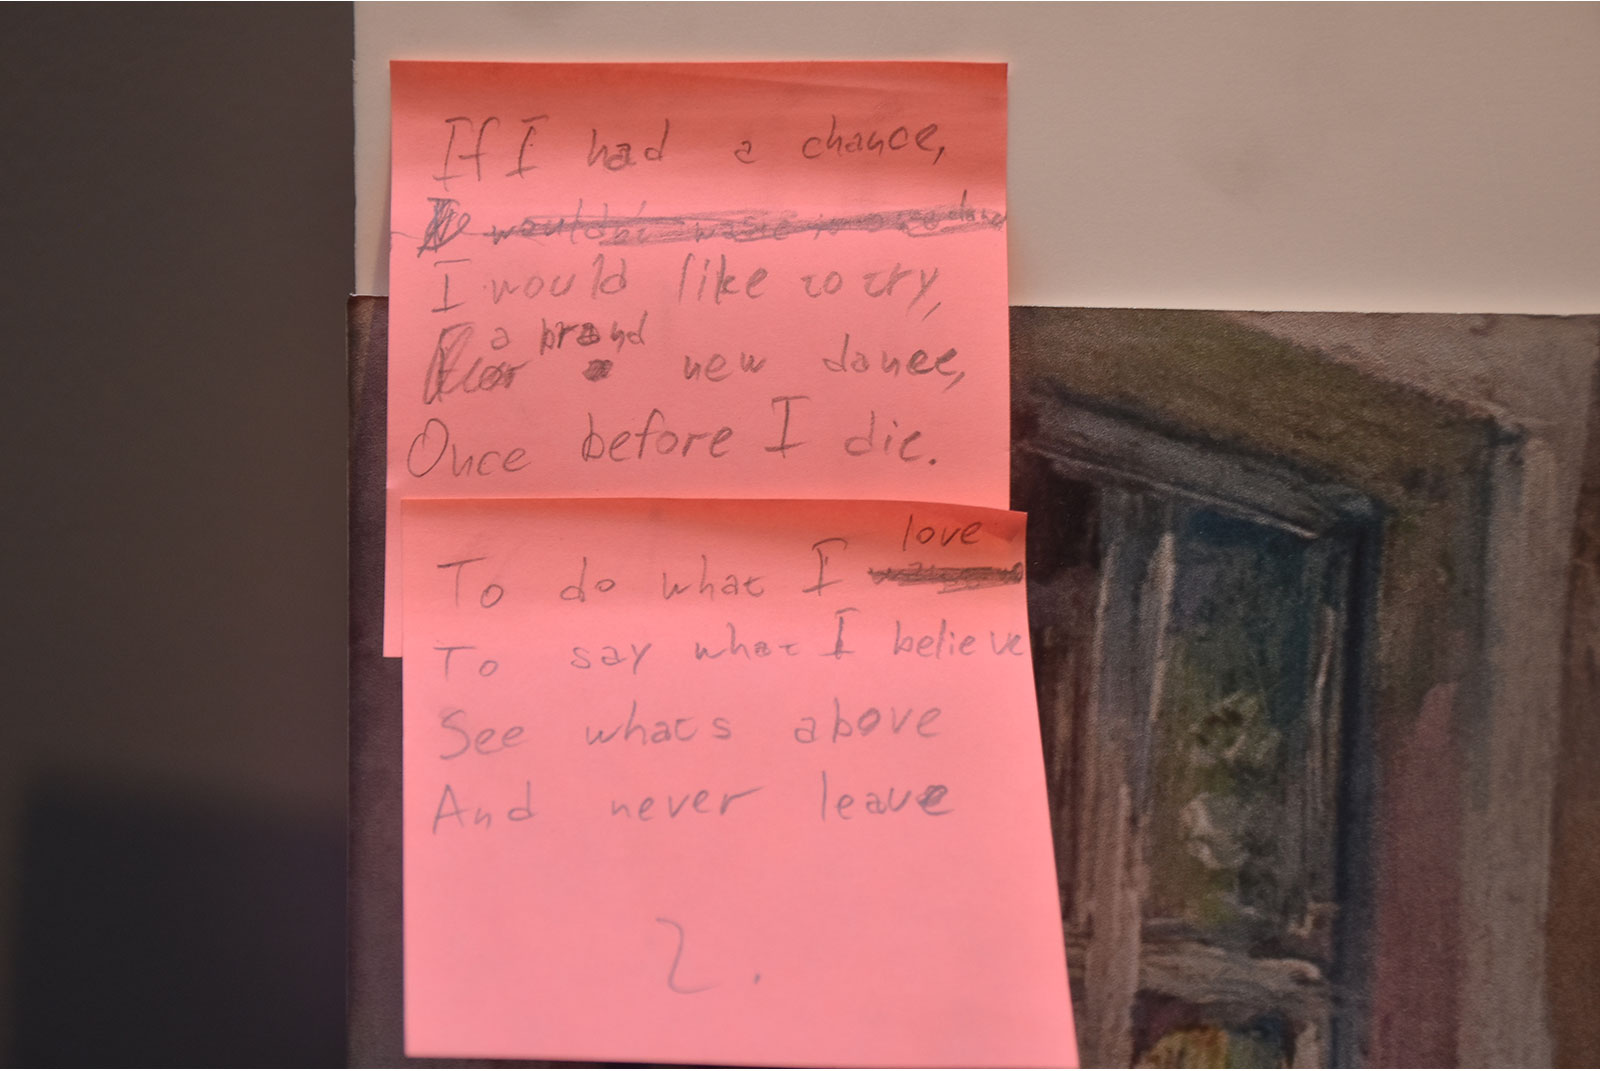 If I had a chance,
I would like to try,
a brand
new dance,
Once before I die.
love
To do what I
To say what I believe
See whats above
And never leave
2.